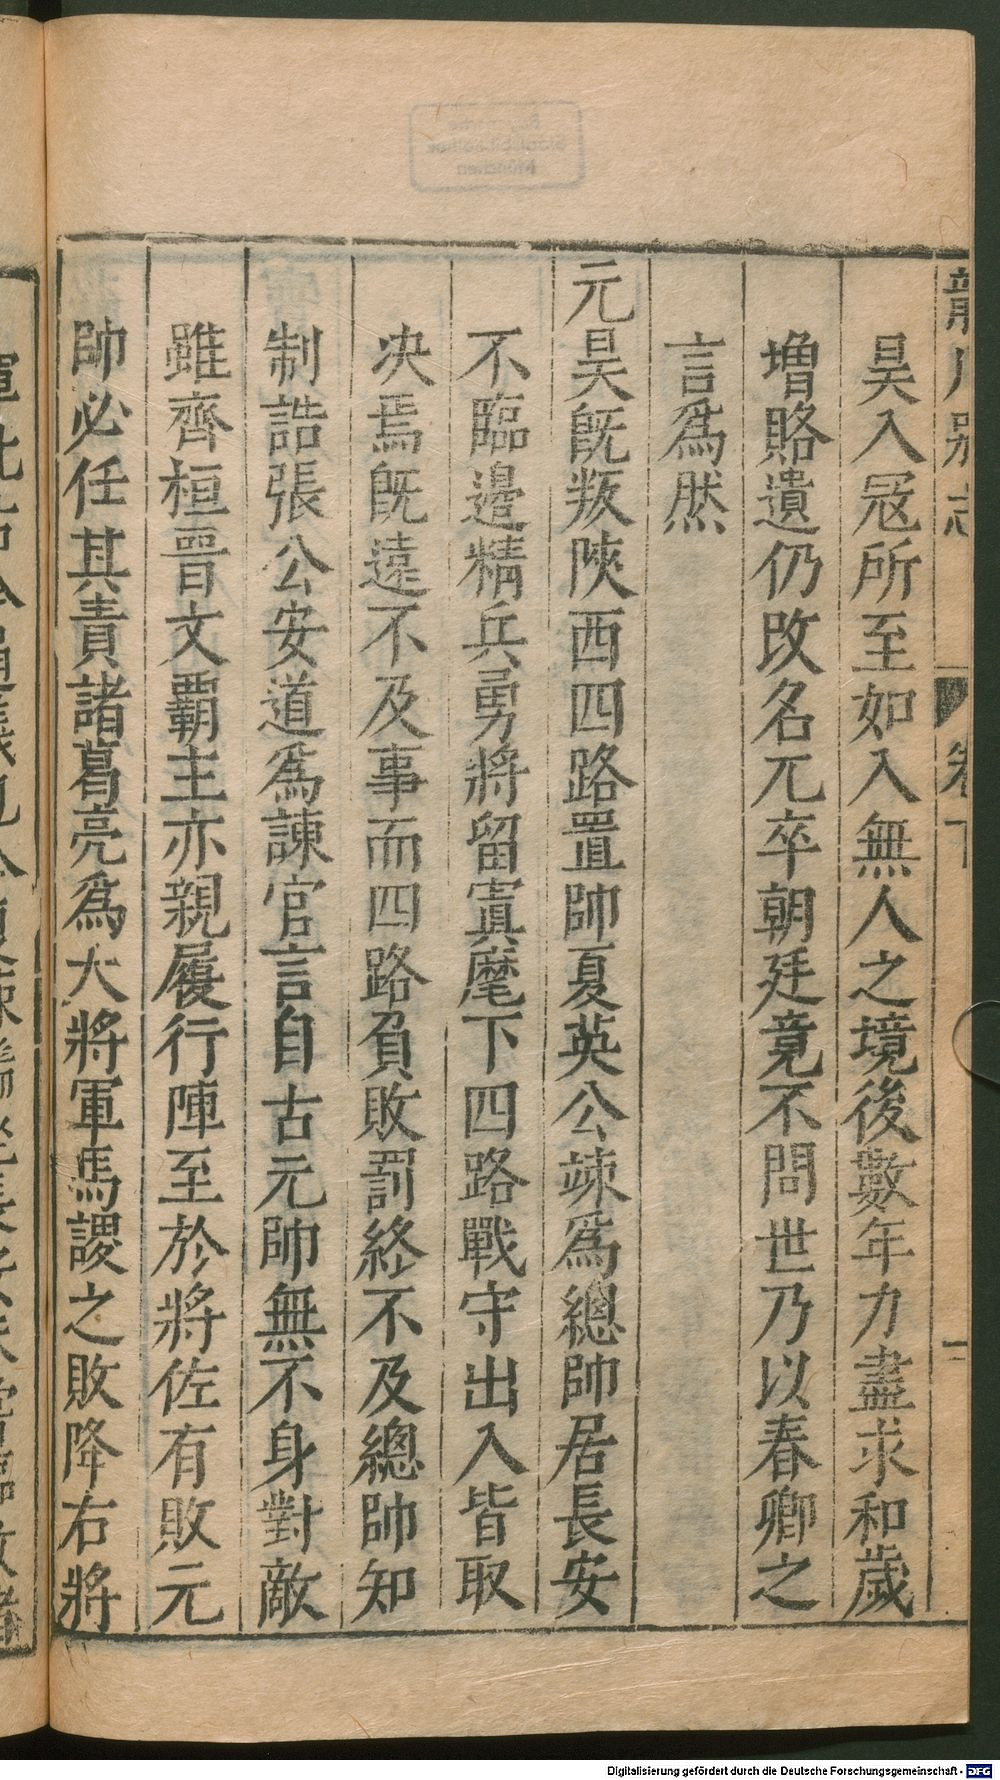 龍川別志
卷下
昊入冦所至如入無人之境後數年力盡求和歲
增賂遺仍改名兀卒朝廷竟不問世乃以春卿之
言爲然
元昊既叛陜西四路置帥夏英公竦爲總帥居長安
不臨邊精兵勇將留寘麾下四路戰守出入皆取
决焉旣遠不及事而四路負敗罰終不及總帥知
制誥張公安道爲諫官言自古元帥無不身對敵
雖齊桓晉文覇主亦親履行陣至於將佐有敗元
帥必任其責諸葛亮爲大將軍馬謖之敗降右將
Digitalisierung gefördert durch die Deutsche Forschungsgemeinschaft - DFG